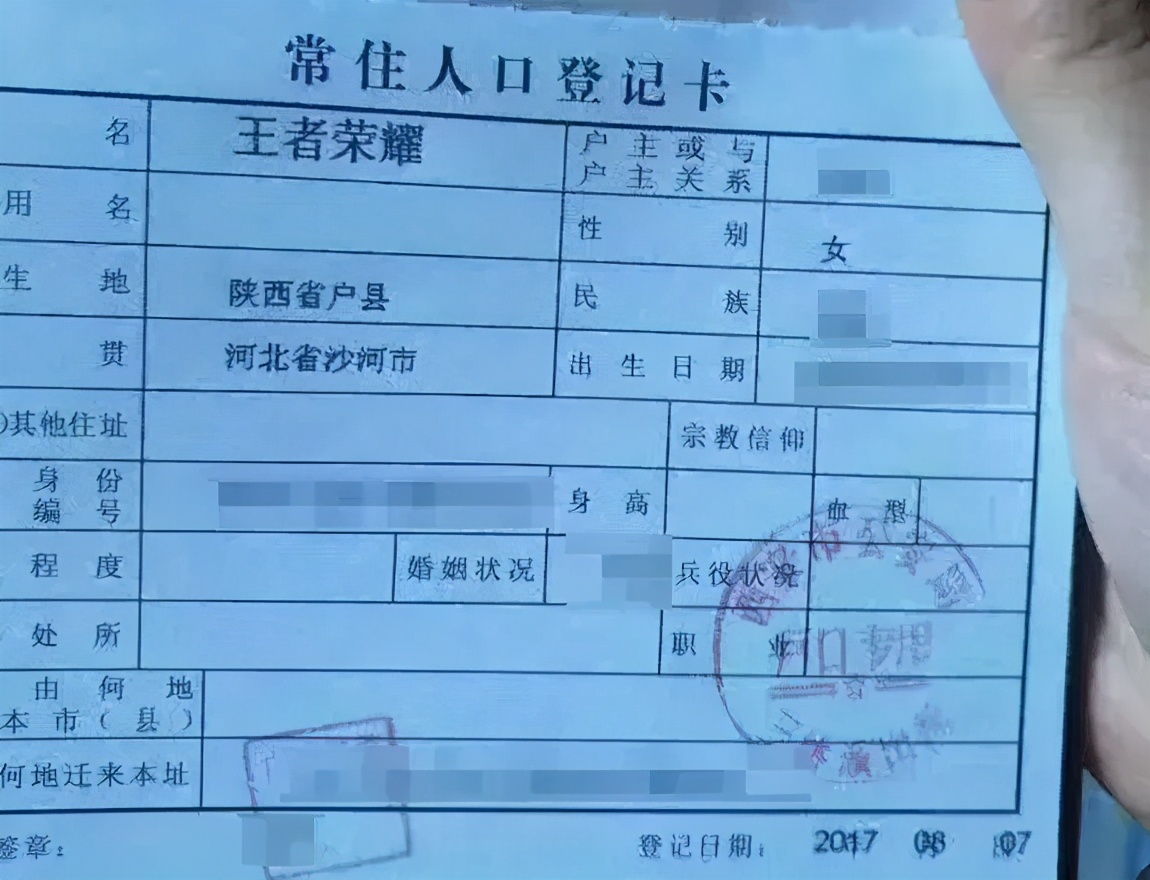 常住人口登记卡
名 王者荣耀 户主或与
户主关系
用名 性别 女
生地 陕西省户县 民族
贯 河北省沙河市 出生日期
)其他住址 宗教信仰
身份
编号 身高 血型
程度 婚姻状况 兵役状况
处所 职业
由何地
本市(县)
何地迁来本址
签章: 登记日期: 2017 08 07